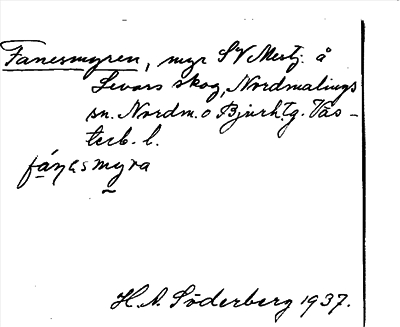 Fanesmyren, myr SV Mestj. å
Levars skog, Nordmalings
sn. Nordm. o Bjurh. tg. Väs-
terb. l.
fánesmyra
H. A. Söderberg 1937.